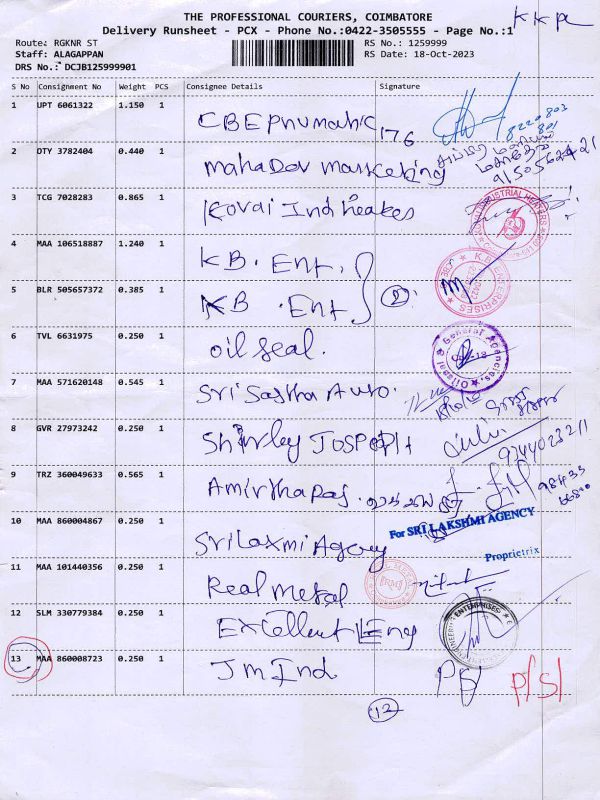 THE PROFESSIONAL COURIERS, COIMBATORE
KKPL
Delivery Runsheet - PCX - Phone No.:0422-3505555 - Page No.:1
Route: RGKNR ST
RS No.: 1259999
Staff: ALAGAPPAN
RS Date: 18-Oct-2023
DRS No.: DCJB125999901
S No Consignment No Weight PCS Consignee Details Signature
1 UPT 6061322 1.150 1 CBE Pnumahic 176 8220803
801
2 DTY 3782404 0.440 1 Mahadev Marketing 9150562421
3 TCG 7028283 0.865 1 Kovai Ind Heates INDUSTRIAL HEATERS
4 MAA 106518887 1.240 1 KB. Ent. K.B. ENTERPRISES
5 BLR 505657372 0.385 1 KB. Ent 2
6 TVL 6631975 0.250 1 oil seal. Oilseal & General Agencies
7 MAA 571620148 0.545 1 Sri Sastha Auto.
8 GVR 27973242 0.250 1 Shirley JOSPEPH 9344023211
9 TRZ 360049633 0.565 1 Amirtharaj. 98433
10 MAA 860004867 0.250 1 Sri Laxmi Agency For SRI LAKSHMI AGENCY
Proprietrix
11 MAA 101440356 0.250 1 Real Metal RM
12 SLM 330779384 0.250 1 Excellent Eng ENTERPRISES
13 MAA 860008723 0.250 1 Jm Ind P/S/
12